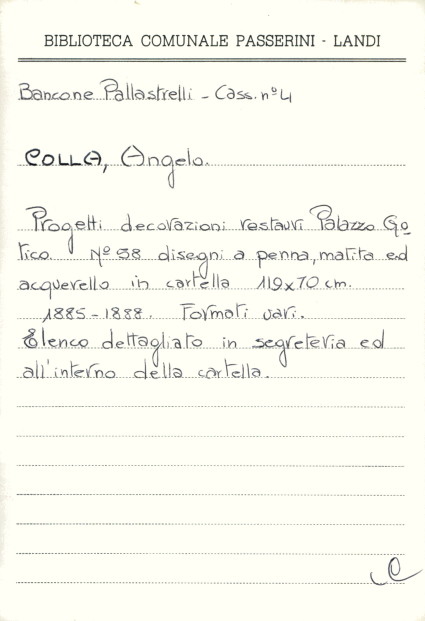 BIBLIOTECA COMUNALE PASSERINI - LANDI
Bancone Pallastrelli - Cass. nº 4
COLLA, Angelo.
Progetti decorazioni restauri Palazzo Go
tico. Nº 38 disegni a penna, matita ed
acquerello in cartella 119x70 cm.
1885-1888. Formati vari.
Elenco dettagliato in segreteria ed
all'interno della cartella.